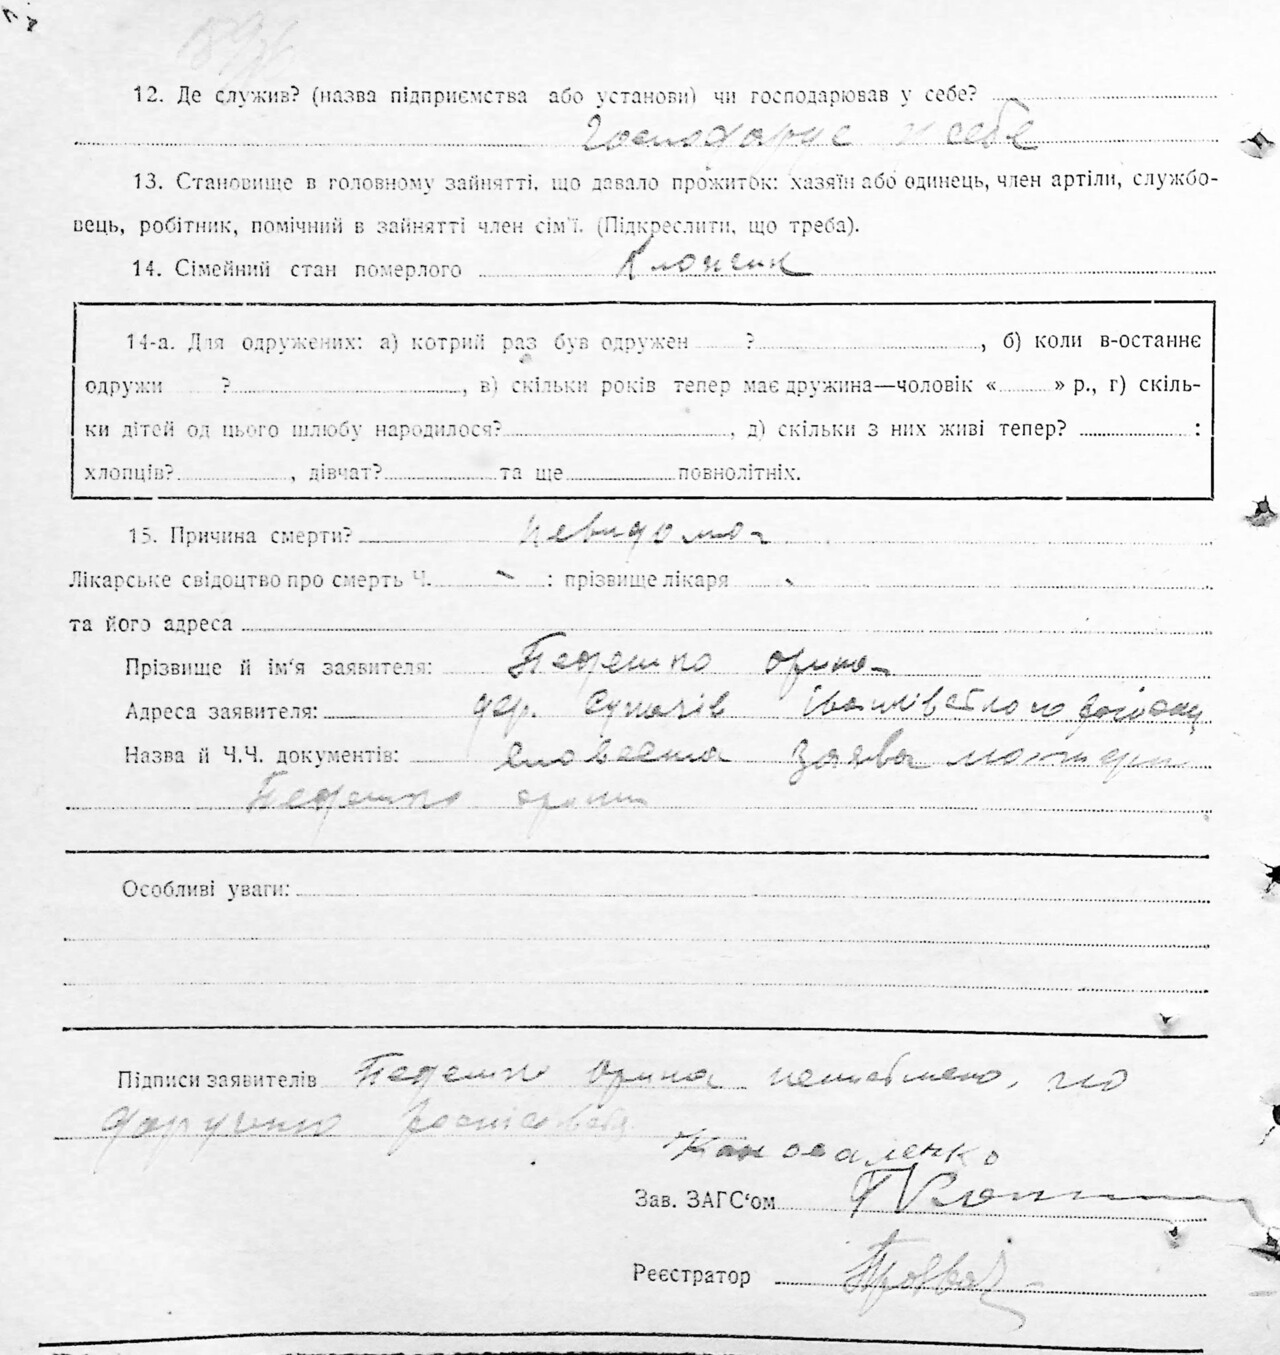 12. Де служив? (назва підприємства або установи) чи господарював у себе?
Господарує у себе
13. Становище в головному зайнятті, що давало прожиток: хазяїн або одинець, член артіли, службо-
вець, робітник, помічний в зайнятті член сім'ї. (Підкреслити, що треба).
14. Сімейний стан померлого
14-а. Для одружених: а) котрий раз був одружен ? , б) коли в-останнє
одружи ? , в) скільки років тепер має дружина—чоловік « » р., г) скіль-
ки дітей од цього шлюбу народилося? , д) скільки з них живі тепер? :
хлопців? , дівчат? та ще повнолітніх.
15. Причина смерти? невидома
Лікарське свідоцтво про смерть Ч. - : прізвище лікаря
та його адреса
Прізвище й ім'я заявителя: Орина
Адреса заявителя:
Назва й Ч.Ч. документів: словесна заява матери
Орини
Особливі уваги:
Підписи заявителів Орина неписьмена, по
доручению
Коноваленко
Зав. ЗАГС'ом
Реєстратор